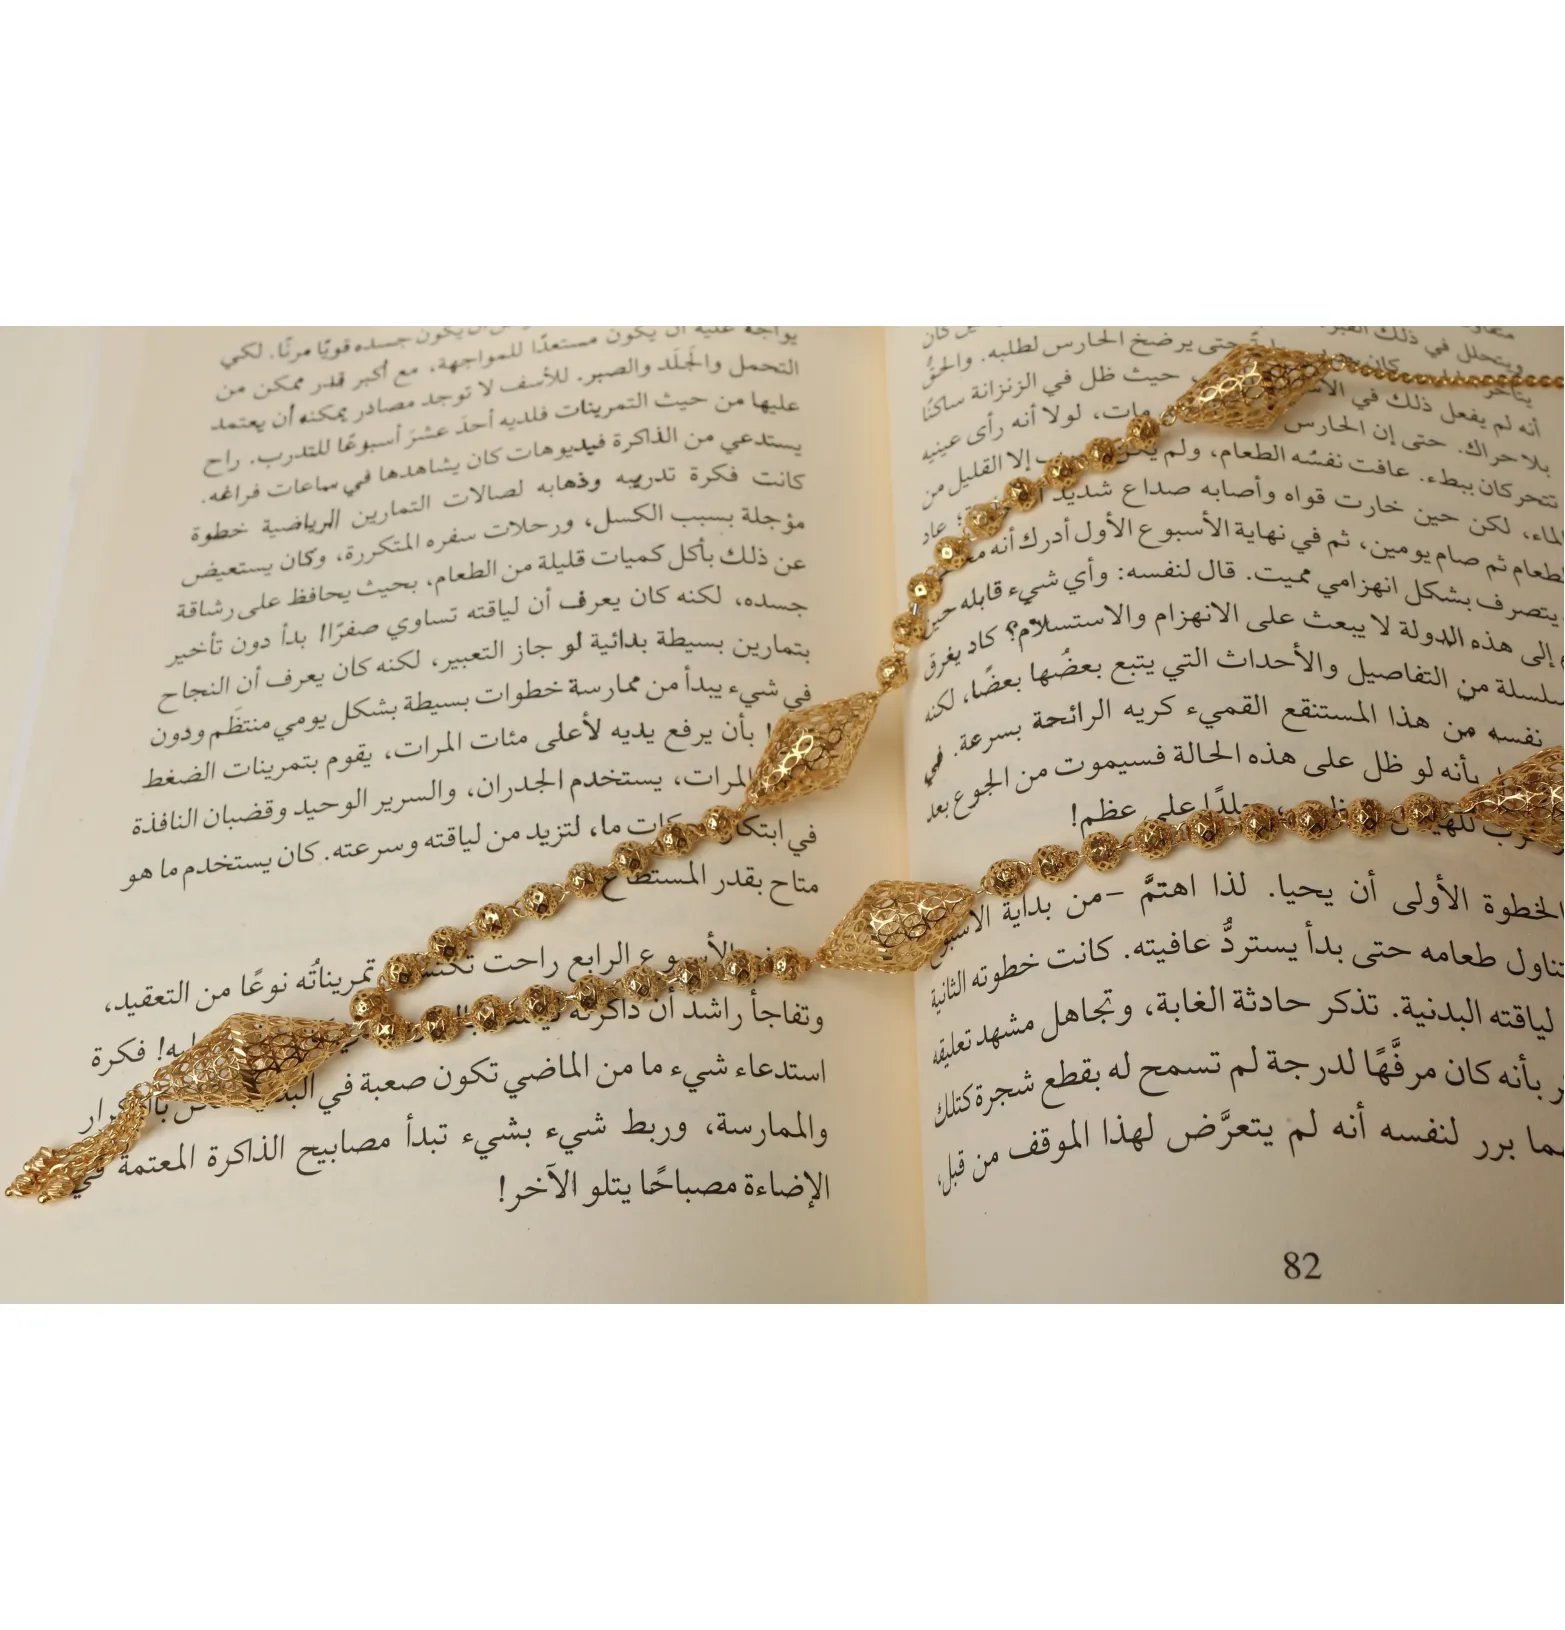 ويتحلل في ذلك القبر
حتى يرضخ الحارس لطلبه. والحق
أنه لم يفعل ذلك في حيث ظل في الزنزانة ساكنًا
بلا حراك. حتى إن الحارس مات، لولا أنه رأى عينيه
تتحركان ببطء. عافت نفسُه الطعام، ولم إلا القليل من
الماء، لكن حين خارت قواه وأصابه صداع شديد عاد
للطعام ثم صام يومين، ثم في نهاية الأسبوع الأول أدرك أنه
يتصرف بشكل انهزامي مميت. قال لنفسه: وأي شيء قابله حين
إلى هذه الدولة لا يبعث على الانهزام والاستسلام؟ كاد يغرق
سلسلة من التفاصيل والأحداث التي يتبع بعضُها بعضًا، لكنه
نفسه من هذا المستنقع القميء كريه الرائحة بسرعة. في
بأنه لو ظل على هذه الحالة فسيموت من الجوع بعد
جلدًا على عظم!
الخطوة الأولى أن يحيا. لذا اهتمَّ –من بداية
تناول طعامه حتى بدأ يستردُّ عافيته. كانت خطوته الثانية
لياقته البدنية. تذكر حادثة الغابة، وتجاهل مشهد تعليقه
بأنه كان مرفَّهًا لدرجة لم تسمح له بقطع شجرة كتلك
برر لنفسه أنه لم يتعرَّض لهذا الموقف من قبل،
82
يواجه عليه أن يكون مستعدًا للمواجهة، مع أكبر قدر ممكن من
التحمل والجَلَد والصبر. للأسف لا توجد مصادر يمكنه أن يعتمد
عليها من حيث التمرينات فلديه أحدَ عشرَ أسبوعًا للتدرب. راح
يستدعي من الذاكرة فيديوهات كان يشاهدها في ساعات فراغه.
كانت فكرة تدريبه وذهابه لصالات التمارين الرياضية خطوة
مؤجلة بسبب الكسل، ورحلات سفره المتكررة، وكان يستعيض
عن ذلك بأكل كميات قليلة من الطعام، بحيث يحافظ على رشاقة
جسده، لكنه كان يعرف أن لياقته تساوي صفرًا! بدأ دون تأخير
بتمارين بسيطة بدائية لو جاز التعبير، لكنه كان يعرف أن النجاح
في شيء يبدأ من ممارسة خطوات بسيطة بشكل يومي منتظَم ودون
بأن يرفع يديه لأعلى مئات المرات، يقوم بتمرينات الضغط
المرات، يستخدم الجدران، والسرير الوحيد وقضبان النافذة
في ما، لتزيد من لياقته وسرعته. كان يستخدم ما هو
متاح بقدر المستطاع
الأسبوع الرابع راحت تمريناتُه نوعًا من التعقيد،
وتفاجأ راشد أن ذاكرته فكرة
استدعاء شيء ما من الماضي تكون صعبة في
والممارسة، وربط شيء بشيء تبدأ مصابيح الذاكرة المعتمة في
الإضاءة مصباحًا يتلو الآخر!